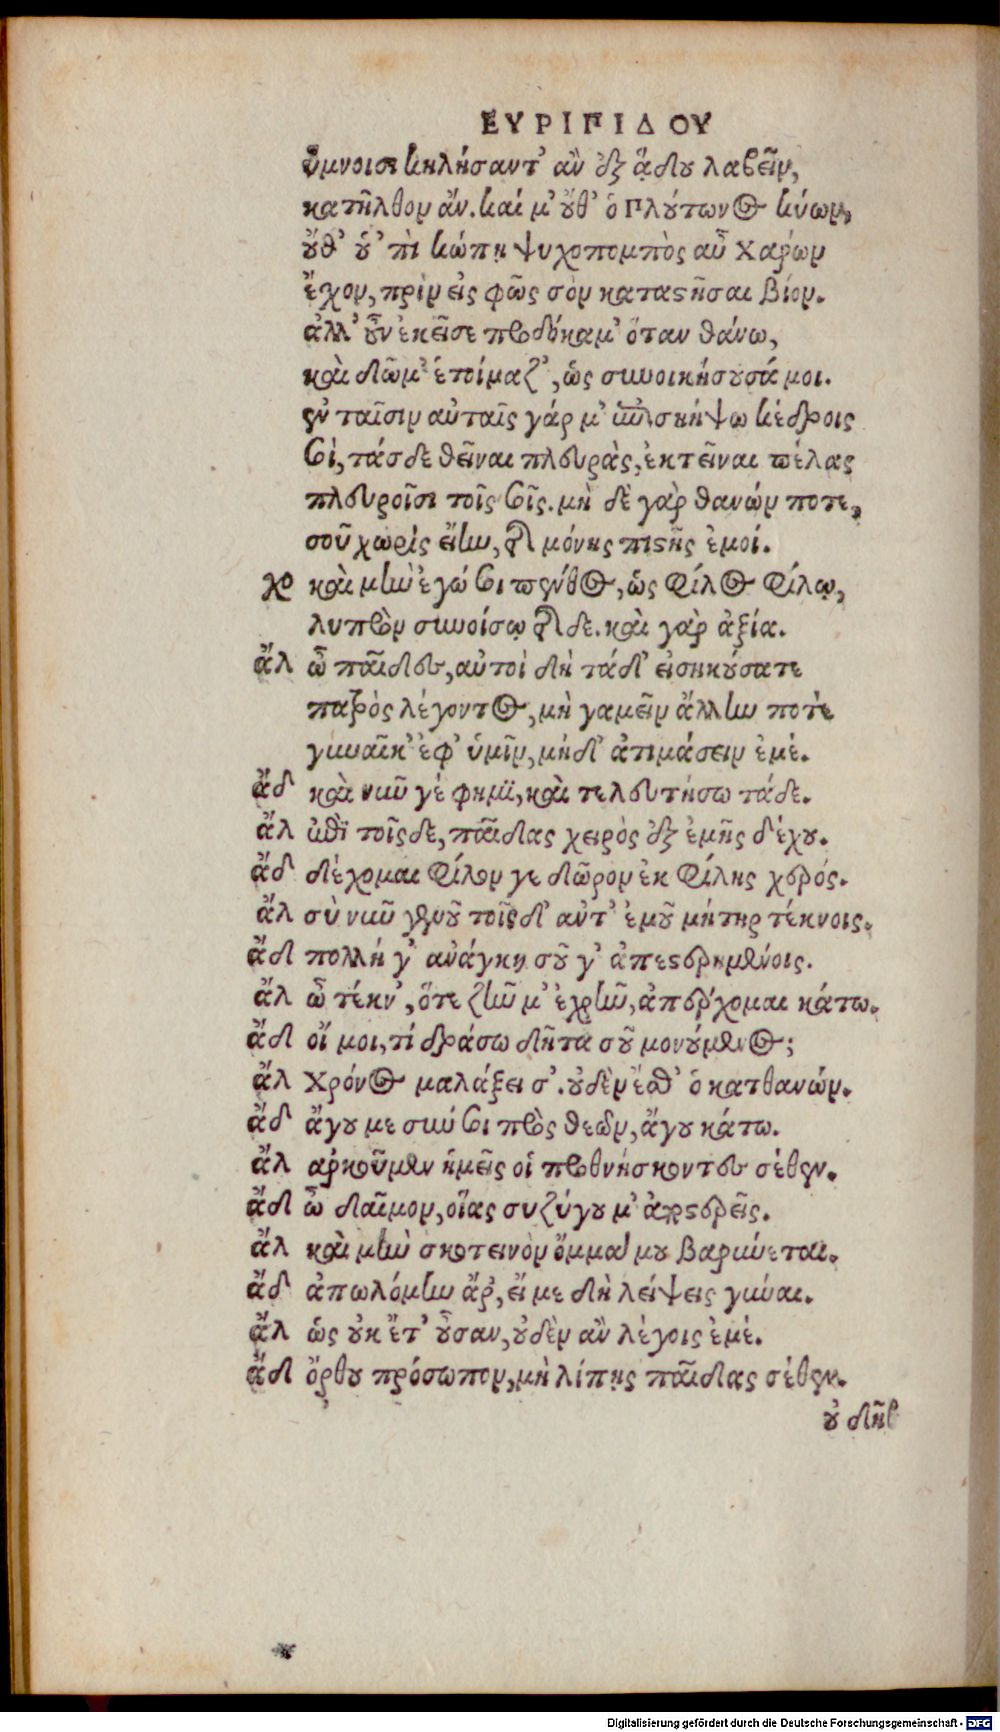 ΕΥΡΙΠΙΔΟΥ
ὕμνοισι κηλήσαντ' ἂν ἐξ ᾅδου λαβεῖν,
κατῆλθον ἄν. καί μ' οὔθ' ὁ Πλούτωνος κύων,
οὔθ' οὑ' πὶ κώπῃ ψυχοπομπὸς αὖ Χαρών
ἔχον, πρὶν εἰς φῶς σὸν καταστῆσαι βίον.
ἀλλ' οὖν ἐκεῖσε προσδόκαμ' ὅταν θάνω,
καὶ δῶμ' ἑτοίμαζ', ὡς συνοικήσουσά μοι.
ἐν ταῖσιν αὐταῖς γάρ μ' ἐπισκήψω κέδροις
σοὶ, τάσδε θεῖναι πλευρὰς, ἐκτεῖναι πέλας
πλευροῖσι τοῖς σοῖς. μὴ δὲ γὰρ θανών ποτε,
σοῦ χωρὶς εἴην, τῆς μόνης πιστῆς ἐμοί.
χο καὶ μὴν ἐγώ σοι πένθος, ὡς φίλος φίλῳ,
λυπρὸν συνοίσω τῆσδε. καὶ γὰρ ἀξία.
ἄλ ὦ παῖδες, αὐτοὶ δὴ τάδ' εἰσηκούσατε
πατρὸς λέγοντος, μὴ γαμεῖν ἄλλην ποτὲ
γυναῖκ' ἐφ' ὑμῖν, μήδ' ἀτιμάσειν ἐμέ.
ἄδ καὶ νῦν γέ φημι, καὶ τελευτήσω τάδε.
ἄλ ἐπὶ τοῖσδε, παῖδας χειρὸς ἐξ ἐμῆς δέχου.
ἄδ δέχομαι φίλον γε δῶρον ἐκ φίλης χερός.
ἄλ σὺ νῦν γενοῦ τοῖσδ' αὐτ' ἐμοῦ μήτηρ τέκνοις.
ἄδ πολλή γ' ἀνάγκη σοῦ γ' ἀπεστερημένοις.
ἄλ ὦ τέκν', ὅτε ζῆν μ' ἐχρῆν, ἀπέρχομαι κάτω.
ἄδ οἴ μοι, τί δράσω δῆτα σοῦ μονούμενος;
ἄλ Χρόνος μαλάξει σ'. οὐδὲν ἔσθ' ὁ κατθανών.
ἄδ ἄγου με σύν σοι πρὸς θεῶν, ἄγου κάτω.
ἄλ ἀρκοῦμεν ἡμεῖς οἱ προθνήσκοντες σέθεν.
ἄδ ὦ δαῖμον, οἵας συζύγου μ' ἀποστερεῖς.
ἄλ καὶ μὴν σκοτεινὸν ὄμμα μου βαρύνεται.
ἄδ ἀπωλόμην ἄρ', εἴ με δὴ λείψεις γύναι.
ἄλ ὡς οὐκ ἔτ' οὖσαν, οὐδὲν ἂν λέγοις ἐμέ.
ἄδ ὄρθου πρόσωπον, μὴ λίπῃς παῖδας σέθεν.
οὐ δῆθ'
Digitalisierung gefördert durch die Deutsche Forschungsgemeinschaft - DFG